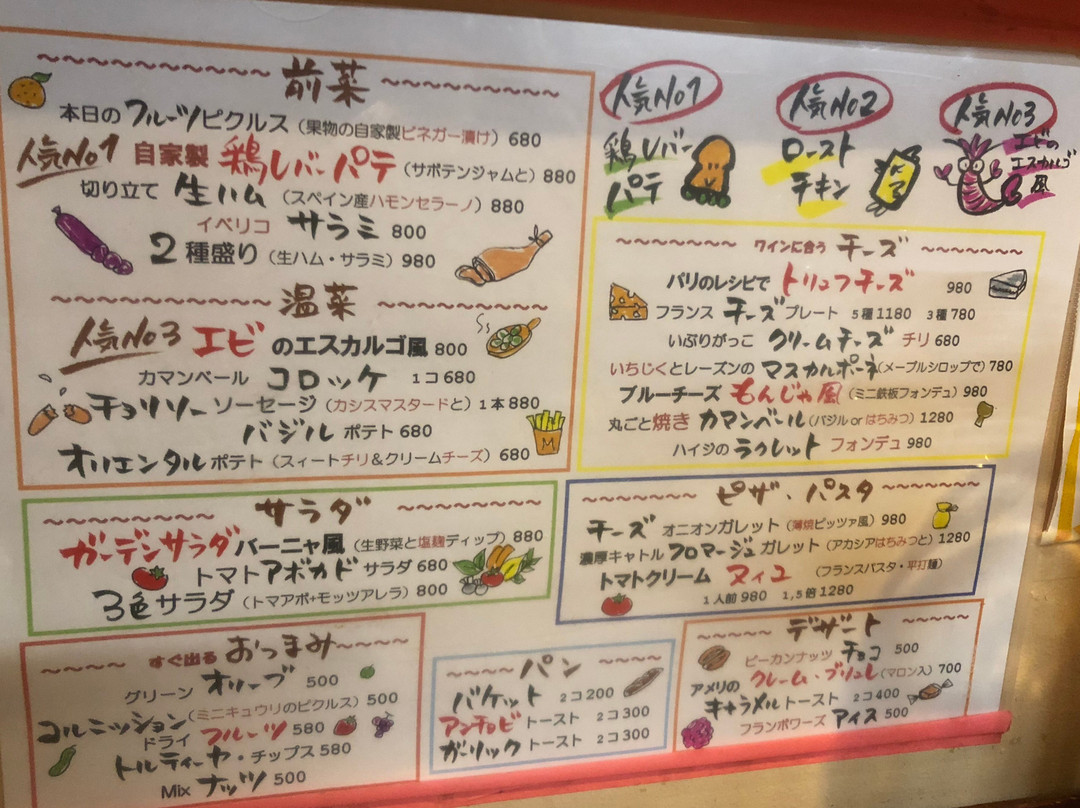 前菜
本日のフルーツピクルス（果物の自家製ビネガー漬け）680
人気No1 自家製 鶏レバーパテ（サボテンジャムと）880
切り立て 生ハム（スペイン産ハモンセラーノ）880
イベリコ サラミ 800
2種盛り（生ハム・サラミ）980
温菜
人気No3 エビのエスカルゴ風 800
カマンベール コロッケ 1コ680
チョリソーソーセージ（カシスマスタードと）1本880
バジルポテト 680
オリエンタルポテト（スィートチリ＆クリームチーズ）680
M
サラダ
ガーデンサラダバーニャ風（生野菜と塩麹ディップ）880
トマトアボカドサラダ 680
3色サラダ（トマアボ+モッツアレラ）800
すぐ出る おつまみ
グリーン オリーブ 500
コルニッション（ミニキュウリのピクルス）500
ドライ フルーツ 580
トルティーヤ・チップス 580
Mix ナッツ 500
人気No1
鶏レバー
パテ
人気No2
ロースト
チキン
人気No3
エビの
エスカルゴ
風
ワインに合う チーズ
パリのレシピで トリュフチーズ 980
フランス チーズプレート 5種1180 3種780
いぶりがっこ クリームチーズ チリ 680
いちじくとレーズンの マスカルポーネ（メープルシロップで）780
ブルーチーズ もんじゃ風（ミニ鉄板フォンデュ）980
丸ごと焼き カマンベール（バジル or はちみつ）1280
ハイジの ラクレット フォンデュ 980
ピザ・パスタ
チーズ オニオンガレット（薄焼ピッツァ風）980
濃厚キャトル フロマージュ ガレット（アカシアはちみつと）1280
トマトクリーム ヌイユ（フランスパスタ・平打麺）
1人前980 1,5倍1280
パン
バケット 2コ200
アンチョビ トースト 2コ300
ガーリック トースト 2コ300
デザート
ピーカンナッツ チョコ 500
アメリの クレーム・ブリュレ（マロン入）700
キャラメルトースト 2コ400
フランボワーズ アイス 500